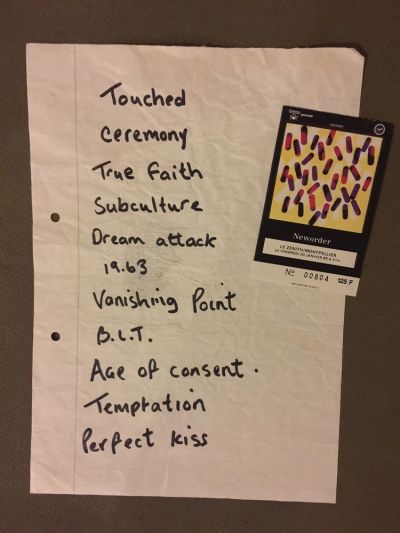 Touched
Ceremony
True Faith
Subculture
Dream attack
19.63
Vanishing Point
B.L.T.
Age of consent.
Temptation
Perfect Kiss
presente
FACTORY
Neworder
LE ZENITH/MONTPELLIER
LE VENDREDI 20 JANVIER 89 A 21H
Nº 00804 125 F